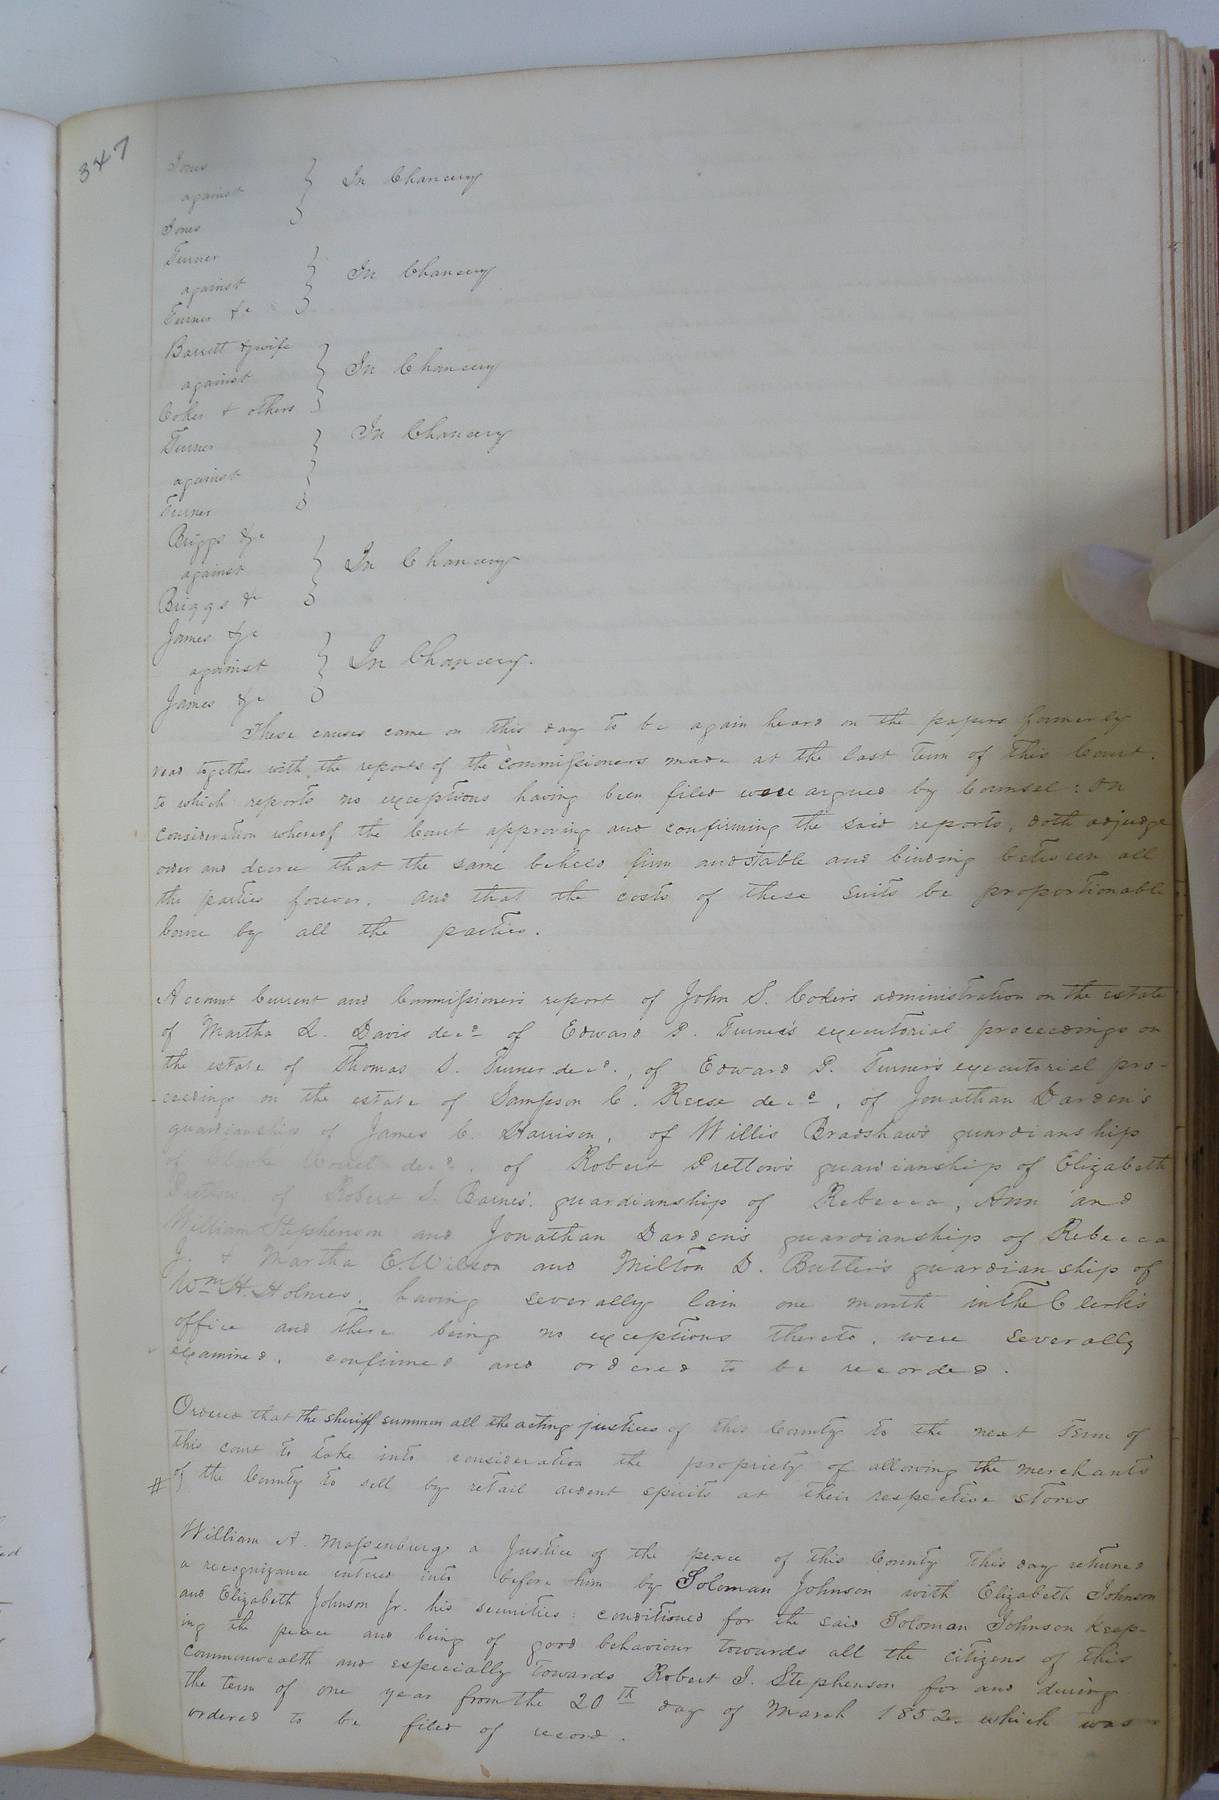 347
Jones
against } In Chancery
Jones
Turner
against } In Chancery
Turner &c
Barrett & wife
against } In Chancery
Coker & others
Turner } In Chancery
against
Turner
Briggs &c
against } In Chancery
Briggs &c
James &c
against } In Chancery.
James &c
These causes came on this day to be again heard on the papers formerly
read together with the reports of the commissioners made at the last Term of this Court.
to which reports no exceptions having been filed were argued by Counsel: On
consideration whereof the Court approving and confirming the said reports, doth adjudge
order and decree that the same beheld firm and stable and binding between all
the parties forever. and that the costs of these suits be proportionable
borne by all the parties.
Account Current and Commissioners report of John S. Coker's administration on the estate
of Martha L. Davis decd of Edward P. Turner's executorial proceedings on
the estate of Thomas D. Turner decd., of Edward P. Turner's executorial pro-
ceedings on the estate of Sampson C. Reese decd, of Jonathan Darden's
guardianship of James C. Harrison, of Willis Bradshaw's guardianship
of decd. of Robert Pretlow's guardianship of Elizabeth
Pretlow of Robert S. Barnes' guardianship of Rebecca, Ann and
William Stephenson and Jonathan Darden's guardianship of Rebecca
J. & Martha E. Wilson and Milton D. Butler's guardianship of
Wm. H. Holmes, having severally lain one month in the Clerk's
office and there being no exceptions thereto, were severally
examined, confirmed and ordered to be recorded.
Ordered that the sheriff summon all the acting justices of this County to the next Term of
this court to take into consideration the propriety of allowing the merchants
# of the County to sell by retail ardent spirits at their respective stores
William A. Massenburg a Justice of the peace of this County this day returned
a recognizance entered into before him by Soloman Johnson with Elizabeth Johnson
and Elizabeth Johnson Jr. his securities: conditioned for the said Soloman Johnson keep-
ing the peace and being of good behaviour towards all the citizens of this
Commonwealth and especially towards Robert J. Stephenson for and during
the term of one year from the 20th day of March 1852. which was
ordered to be filed of record.